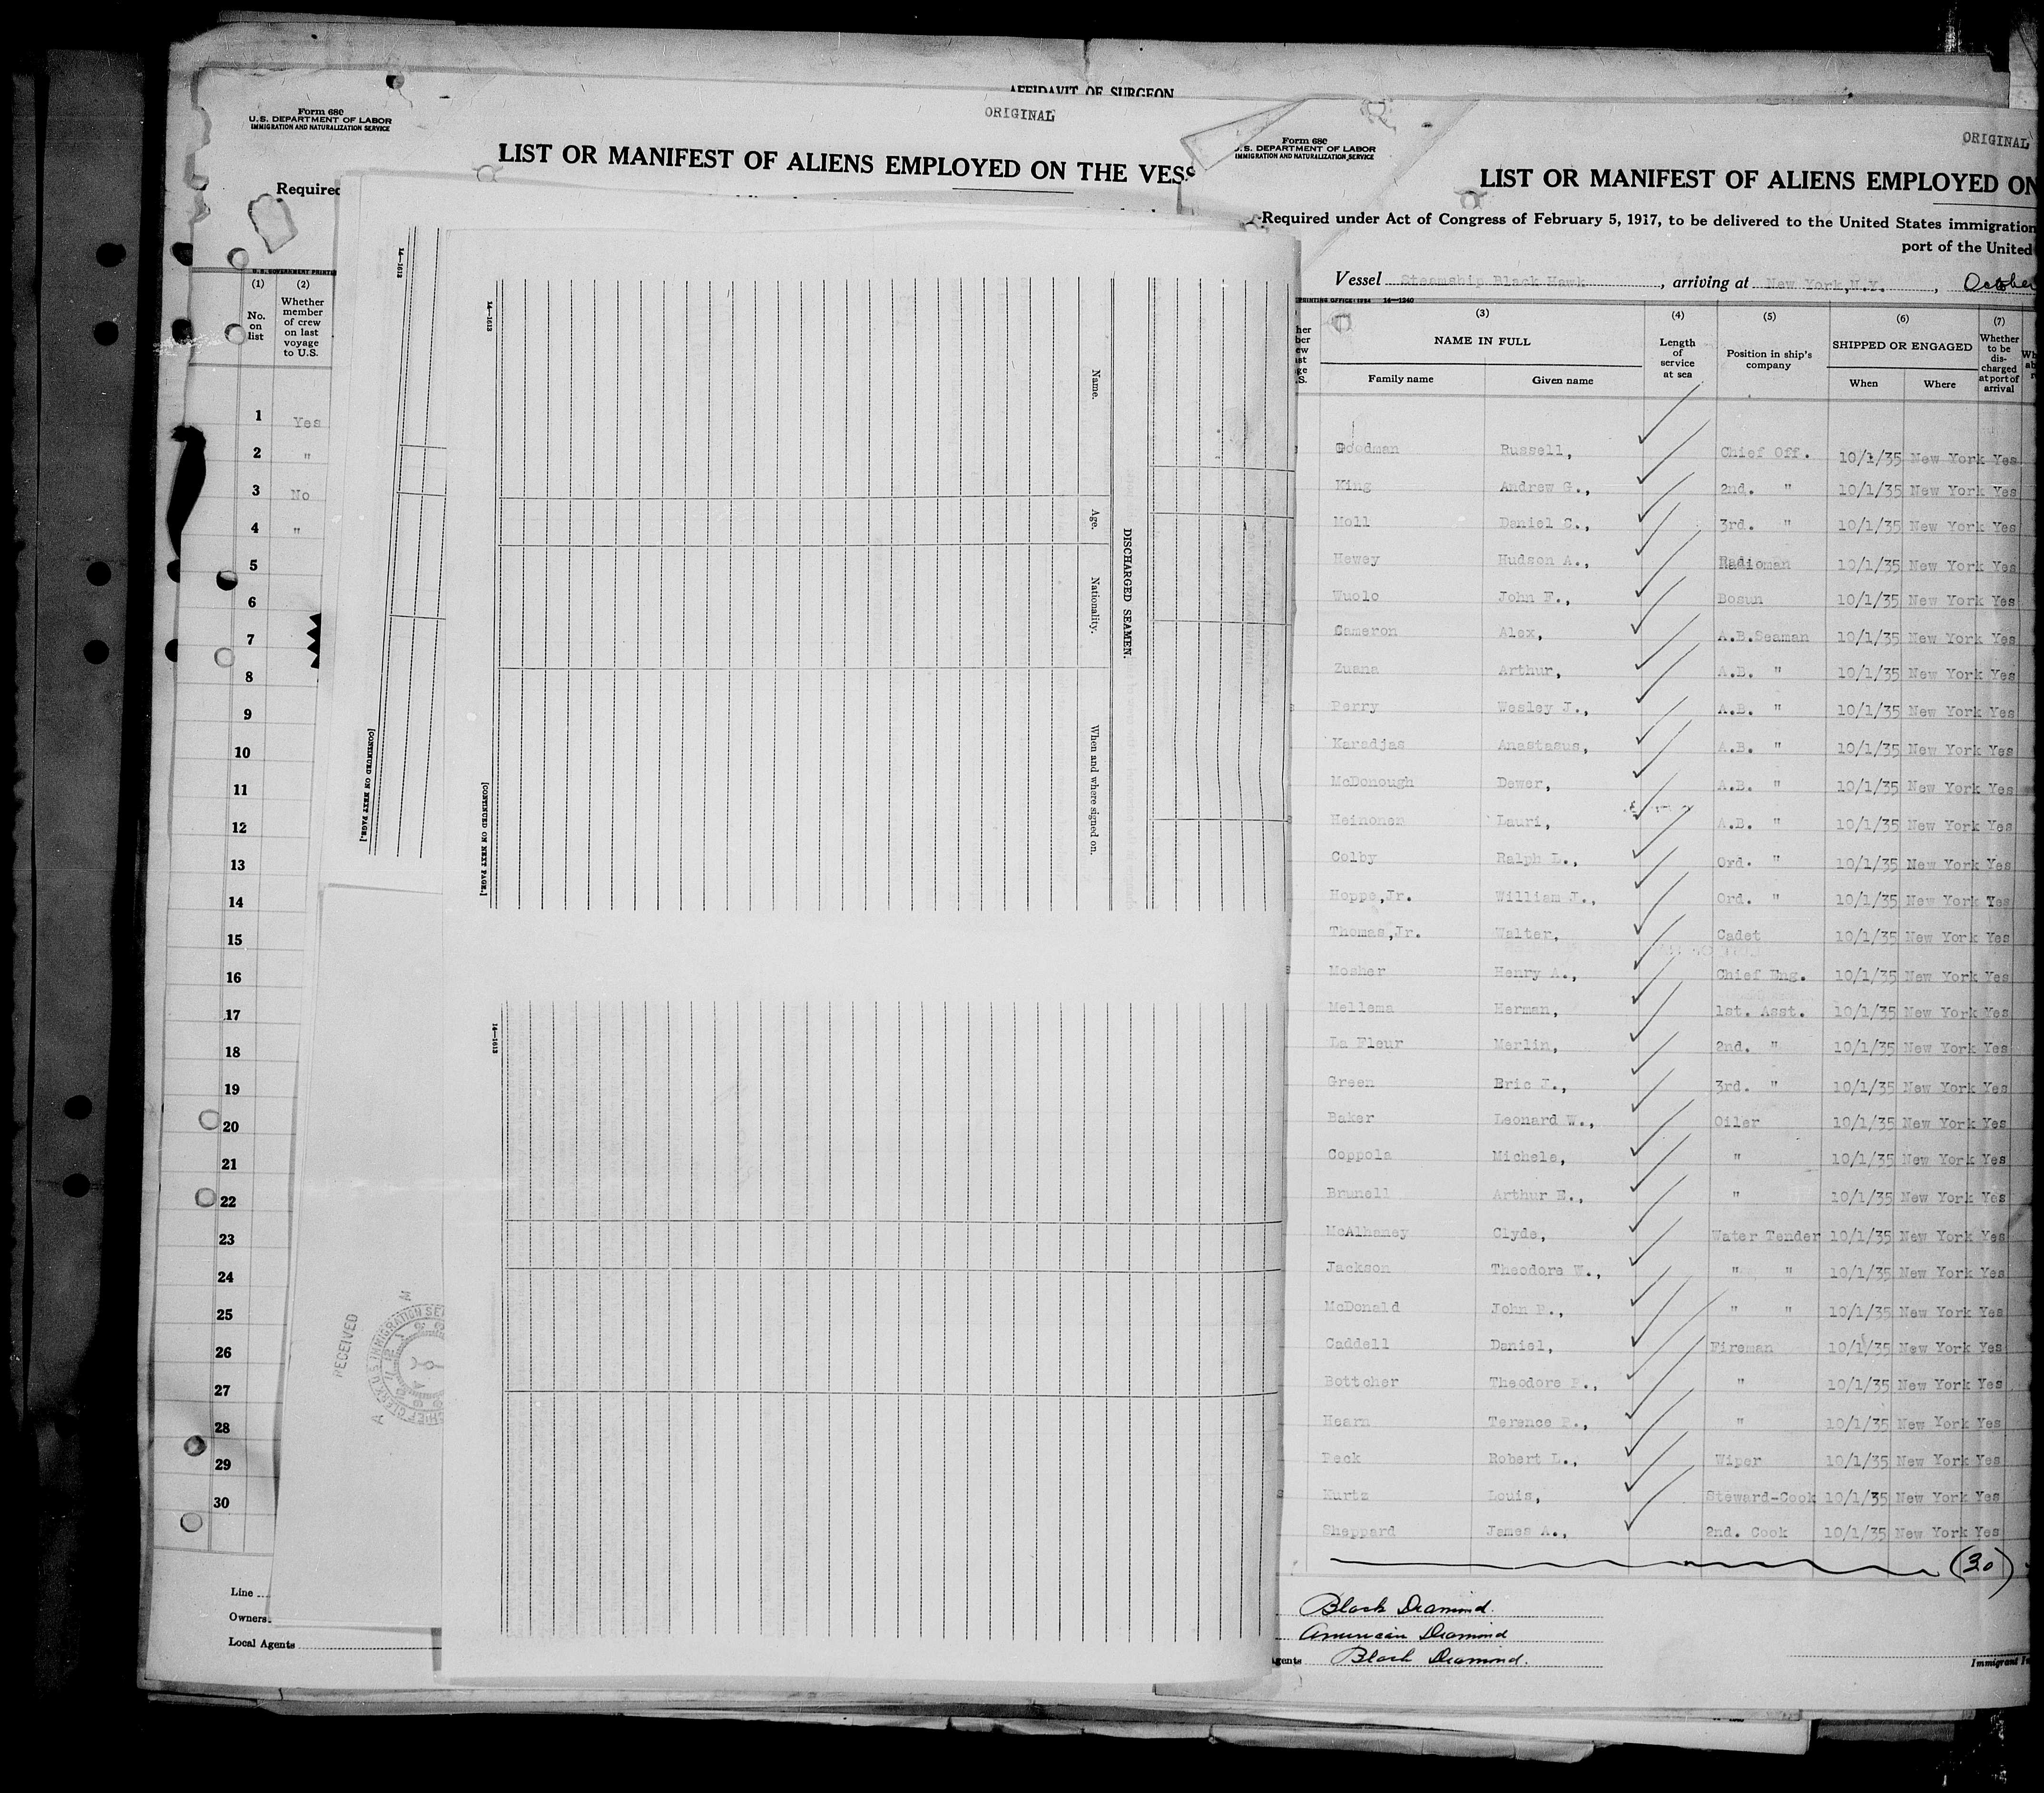 AFFIDAVIT OF SURGEON
Form 680
U.S. DEPARTMENT OF LABOR
IMMIGRATION AND NATURALIZATION SERVICE
ORIGINAL
LIST OR MANIFEST OF ALIENS EMPLOYED ON THE VESS
Required
(1) (2)
No. on list
Whether member of crew on last voyage to U.S.
1 Yes
2 "
3 No
4 "
5
6
7
8
9
10
11
12
13
14
15
16
17
18
19
20
21
22
23
24
25
26
27
28
29
30
Line
Owners
Local Agents
RECEIVED
14—1613
[CONTINUED ON NEXT PAGE.]
14—1613
[CONTINUED ON NEXT PAGE.]
DISCHARGED SEAMEN.
Name. Age. Nationality. When and where signed on.
14—1613
Form 680
U.S. DEPARTMENT OF LABOR
IMMIGRATION AND NATURALIZATION SERVICE
ORIGINAL
LIST OR MANIFEST OF ALIENS EMPLOYED ON
Required under Act of Congress of February 5, 1917, to be delivered to the United States immigration
port of the United
Vessel Steamship Black Hawk, arriving at New York, N.Y., October
PRINTING OFFICE: 1934 14—1240
(3) (4) (5) (6) (7)
NAME IN FULL
Family name Given name
Length of service at sea
Position in ship's company
SHIPPED OR ENGAGED
When Where
Whether to be discharged at port of arrival
Goodman Russell, Chief Off. 10/1/35 New York Yes
King Andrew G., 2nd. " 10/1/35 New York Yes
Moll Daniel C., 3rd. " 10/1/35 New York Yes
Hewey Hudson A., Radioman 10/1/35 New York Yes
Wuolo John F., Bosun 10/1/35 New York Yes
Cameron Alex, A.B.Seaman 10/1/35 New York Yes
Zuana Arthur, A.B. " 10/1/35 New York Yes
Perry Wesley J., A.B. " 10/1/35 New York Yes
Karadjas Anastasus, A.B. " 10/1/35 New York Yes
McDonough Dewer, A.B. " 10/1/35 New York Yes
Heinonen Lauri, A.B. " 10/1/35 New York Yes
Colby Ralph L., Ord. " 10/1/35 New York Yes
Hoppe,Jr. William J., Ord. " 10/1/35 New York Yes
Thomas,Jr. Walter, Cadet 10/1/35 New York Yes
Mosher Henry A., Chief Eng. 10/1/35 New York Yes
Mellema Herman, 1st. Asst. 10/1/35 New York Yes
La Fleur Merlin, 2nd. " 10/1/35 New York Yes
Green Eric J., 3rd. " 10/1/35 New York Yes
Baker Leonard W., Oiler 10/1/35 New York Yes
Coppola Michele, " 10/1/35 New York Yes
Brunell Arthur E., " 10/1/35 New York Yes
McAlhaney Clyde, Water Tender 10/1/35 New York Yes
Jackson Theodore W., " " 10/1/35 New York Yes
McDonald John P., " " 10/1/35 New York Yes
Caddell Daniel, Fireman 10/1/35 New York Yes
Bottcher Theodore P., " 10/1/35 New York Yes
Hearn Terence P., " 10/1/35 New York Yes
Peck Robert L., Wiper 10/1/35 New York Yes
Kurtz Louis, Steward-Cook 10/1/35 New York Yes
Sheppard James A., 2nd. Cook 10/1/35 New York Yes
(30)
Black Diamond.
American Diamond
Agents Black Diamond.
Immigrant In